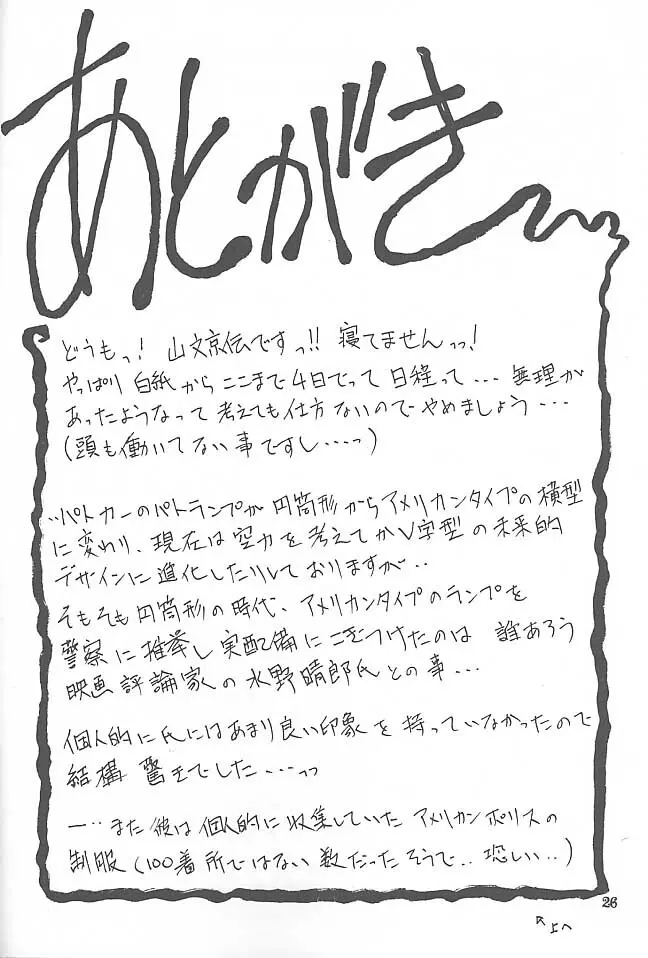 あとがき
どうもっ! 山文京伝ですっ!! 寝てませんっっ!
やっぱり 白紙から ここまで 4日でって 日程って・・・ 無理が
あったようなって 考えても 仕方ないので やめましょう・・・
(頭も働いてない事ですし・・・・っ)
・・パトカーのパトランプが 円筒形からアメリカンタイプの横型
に変わり、現在は空力を考えてかV字型の未来的
デザインに進化したりしておりますが・・
そもそも円筒形の時代、アメリカンタイプのランプを
警察に推挙し実配備にこぎつけたのは 誰あろう
映画評論家の水野晴郎氏との事・・・
個人的に氏にはあまり良い印象を持っていなかったので
結構 驚きでした・・・・っっ
ー・・また彼は個人的に収集していた アメリカンポリスの
制服(100着所ではない数だったそうで・・恐しい・・)
26
↖上へ